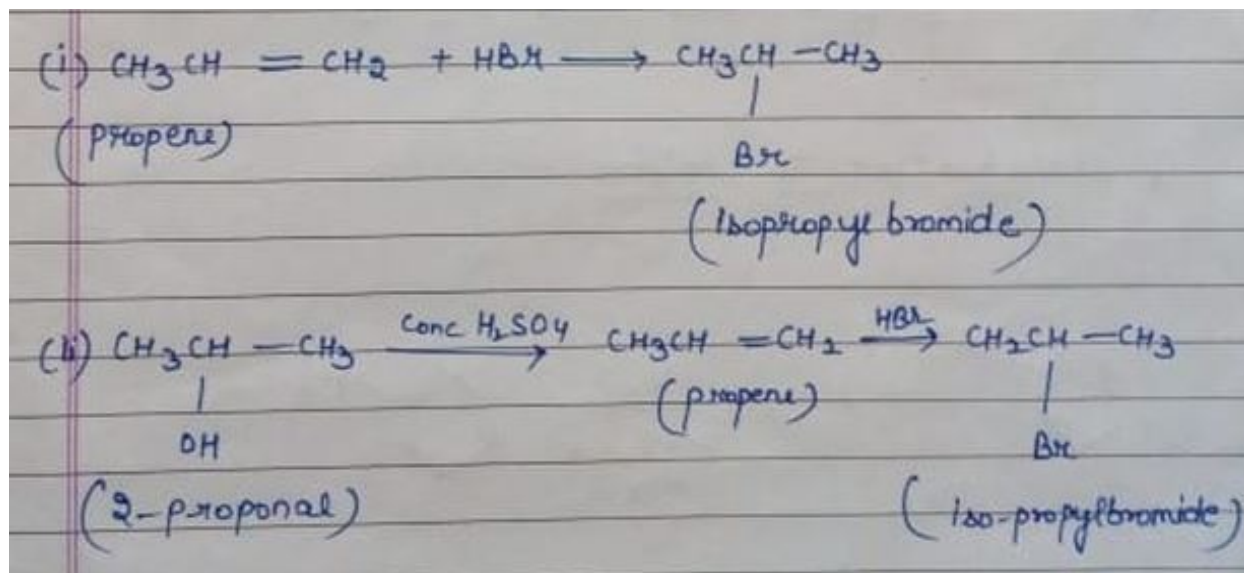 (i) CH3CH = CH2 + HBr ⟶ CH3CH – CH3
|
(propene)
Br
(Isopropyl bromide)
(ii) CH3CH – CH3 Conc H2SO4 ⟶ CH3CH = CH2 HBr ⟶ CH2CH – CH3
| |
(propene)
OH Br
(2-proponal) (Iso-propylbromide)